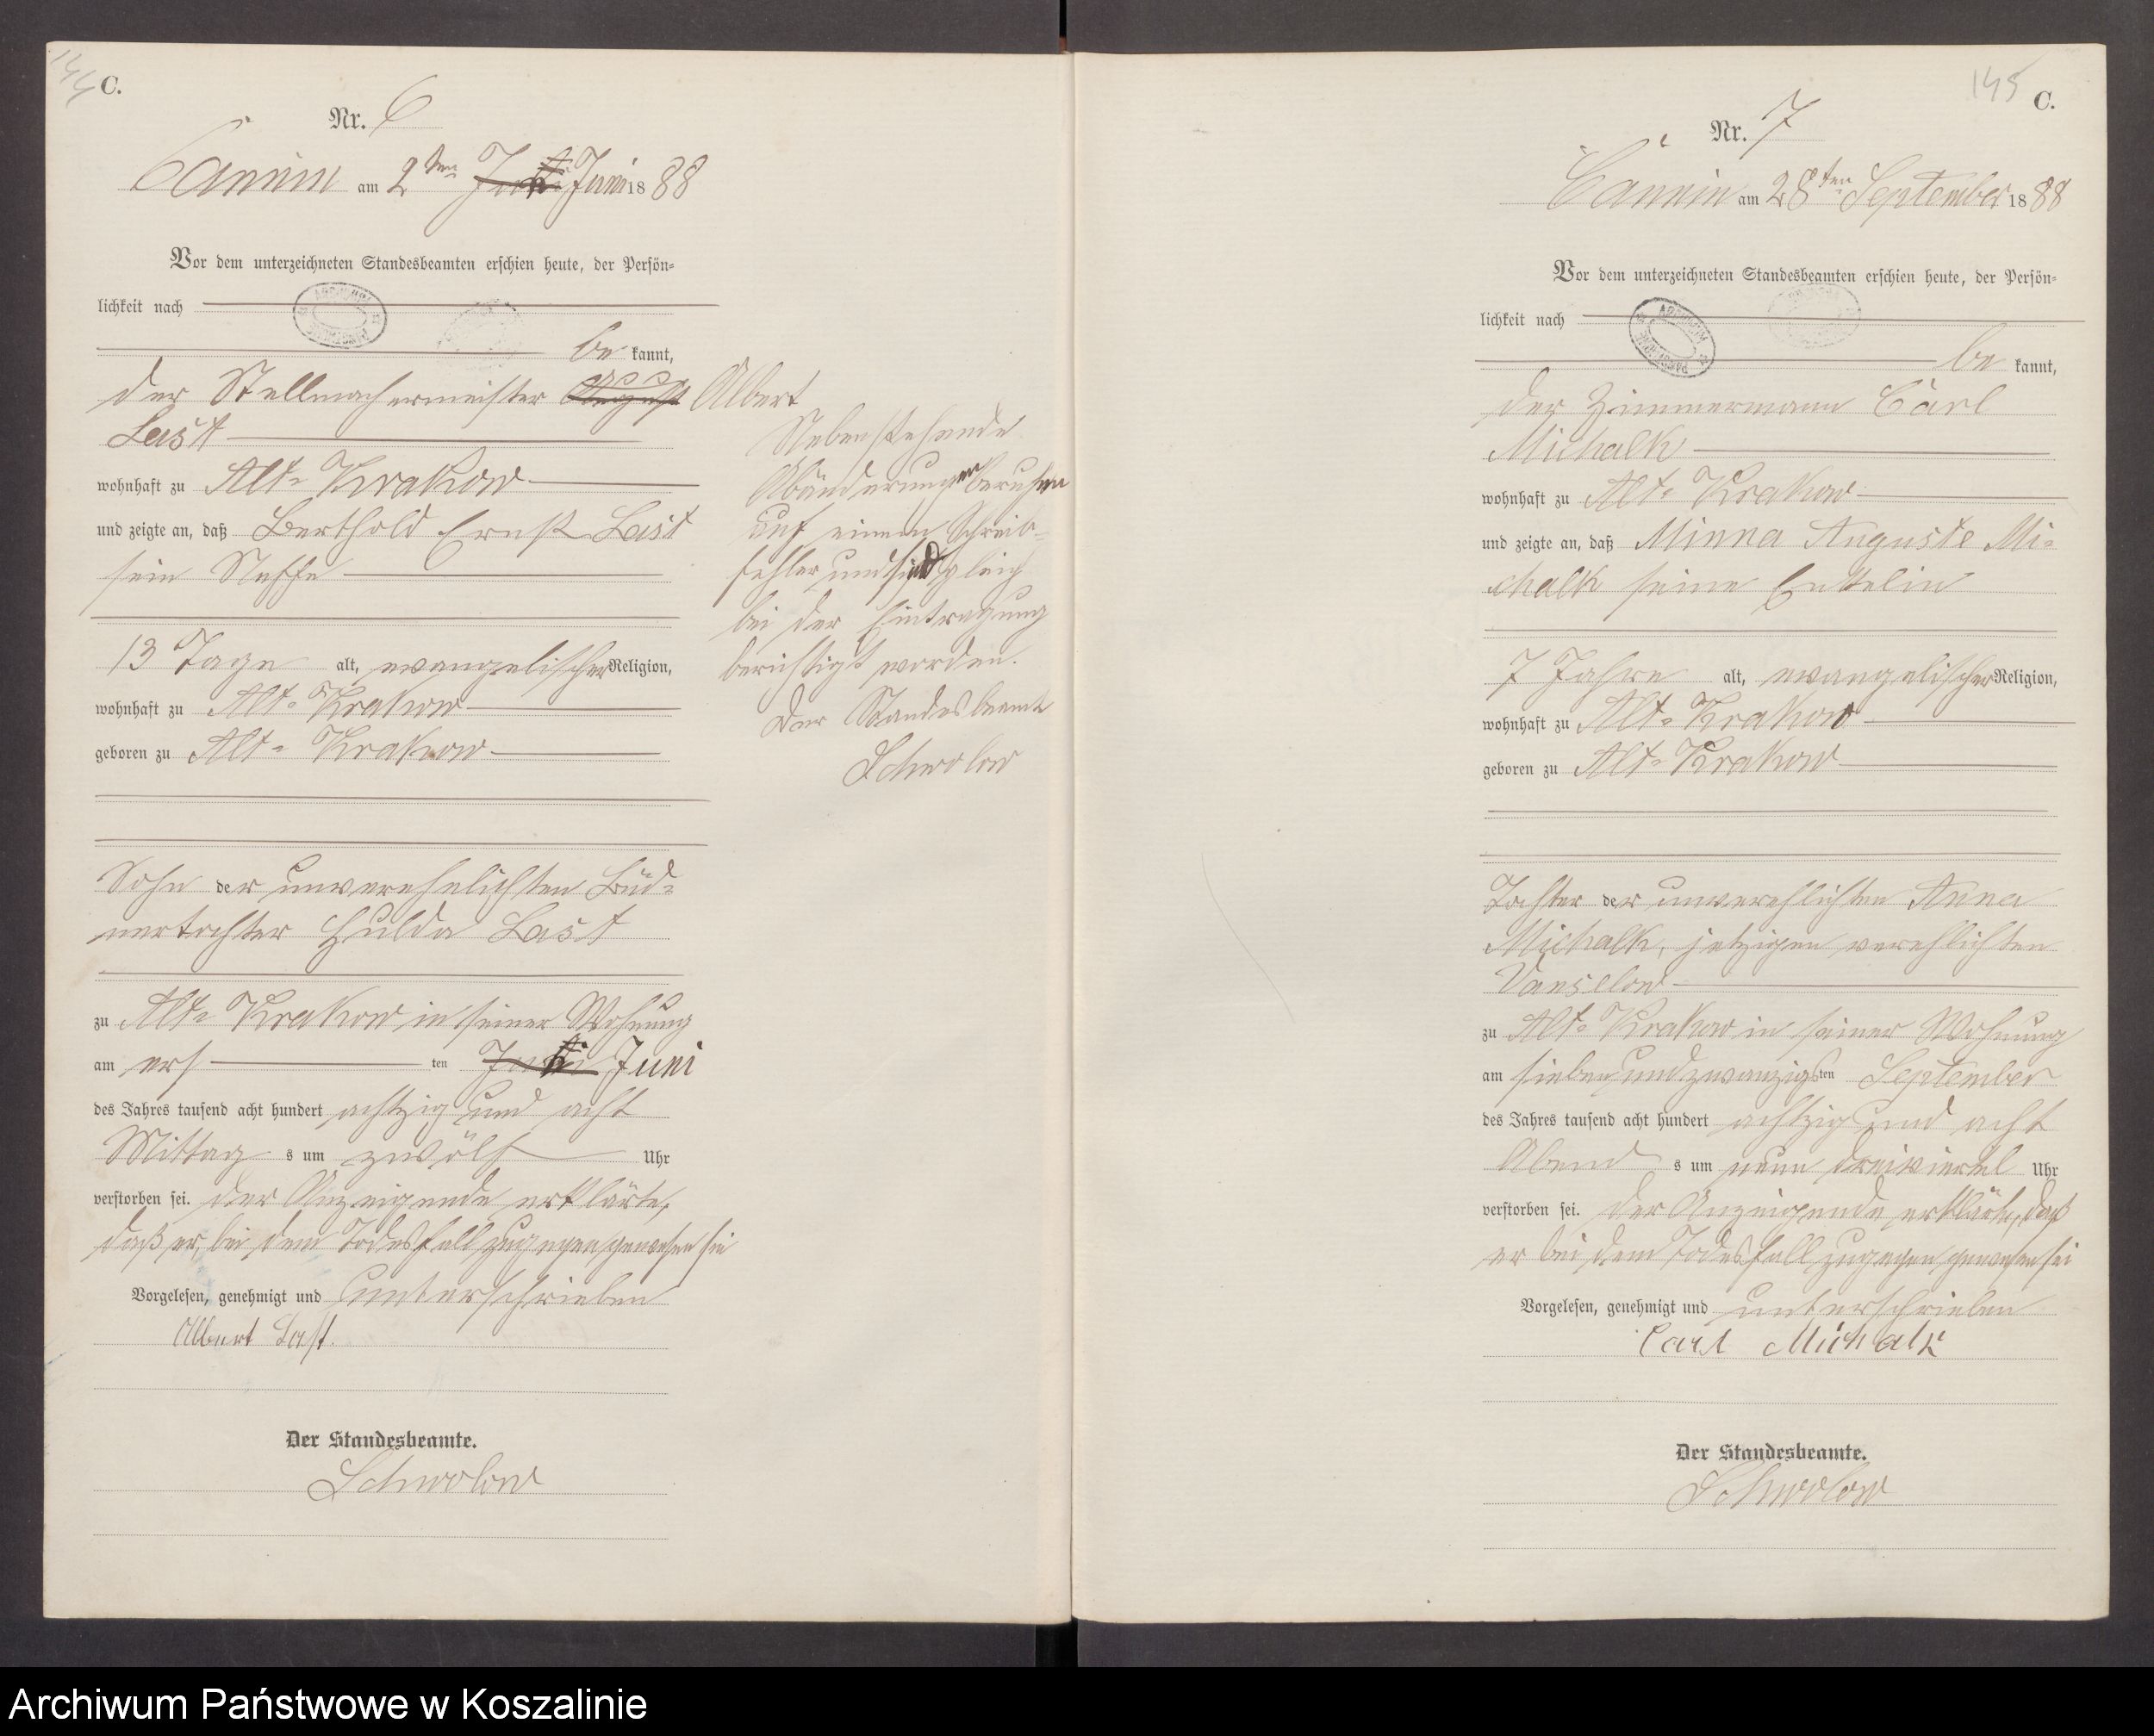 144
C.
Nr. 6
Cannin am 2ten Juni 1888
Vor dem unterzeichneten Standesbeamten erschien heute, der Persön-
lichkeit nach
be kannt,
der Stellmachermeister August Albert
Last
wohnhaft zu Alt-Krakow
und zeigte an, daß Berthold Ernst Last
sein Neffe
13 Tage alt, evangelischer Religion,
wohnhaft zu Alt-Krakow
geboren zu Alt-Krakow
Sohn der unverehelichten Büd-
nertochter Hulda Last
zu Alt-Krakow in seiner Wohnung
am ers ten Juni
des Jahres tausend acht hundert achtzig und acht
Mittag s um zwölf Uhr
verstorben sei. Der Anzeigende erklärte,
daß er, bei dem Todesfall zugegen gewesen sei
Vorgelesen, genehmigt und unterschrieben
Albert Last.
Der Standesbeamte.
Schwolow
Nebenstehende
Abänderungen beruhen
auf einem Schreib-
fehler und sind gleich
bei der Eintragung
berichtigt worden.
Der Standesbeamte
Schwolow
145
C.
Nr. 7
Cannin am 28ten September 1888
Vor dem unterzeichneten Standesbeamten erschien heute, der Persön-
lichkeit nach
be kannt,
der Zimmermann Carl
Michalk
wohnhaft zu Alt-Krakow
und zeigte an, daß Minna Auguste Mi-
chalk seine Enkelin
7 Jahre alt, evangelischer Religion,
wohnhaft zu Alt-Krakow
geboren zu Alt-Krakow
Tochter der unverehlichten Anna
Michalk, jetzigen verehlichten
Vanselow
zu Alt-Krakow in seiner Wohnung
am sieben und zwanzigsten September
des Jahres tausend acht hundert achtzig und acht
Abend s um neun dreiviertel Uhr
verstorben sei. Der Anzeigende erklärte, daß
er bei dem Todesfall zugegen gewesen sei
Vorgelesen, genehmigt und unterschrieben
Carl Michalk
Der Standesbeamte.
Schwolow
Archiwum Państwowe w Koszalinie